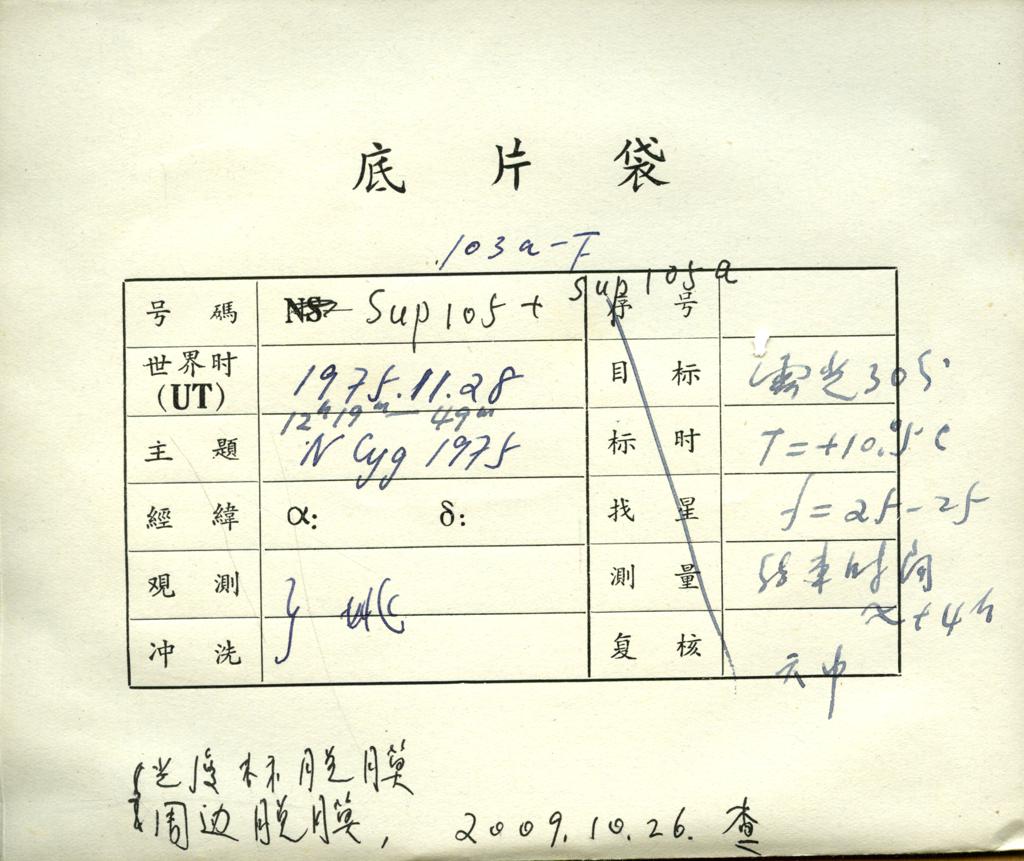 底片袋
103a-F
号碼 Sup105+ sup105a 序号
世界时 (UT) 1975.11.28 目标 露光30分
12h19m—49m
主題 N Cyg 1975 标时 T=+10.5℃
經緯 α: δ: 找星 f=25-25
观測 测量 时间
≈+4h
冲洗 复核
光度标脱膜
周边脱膜, 2009.10.26. 查